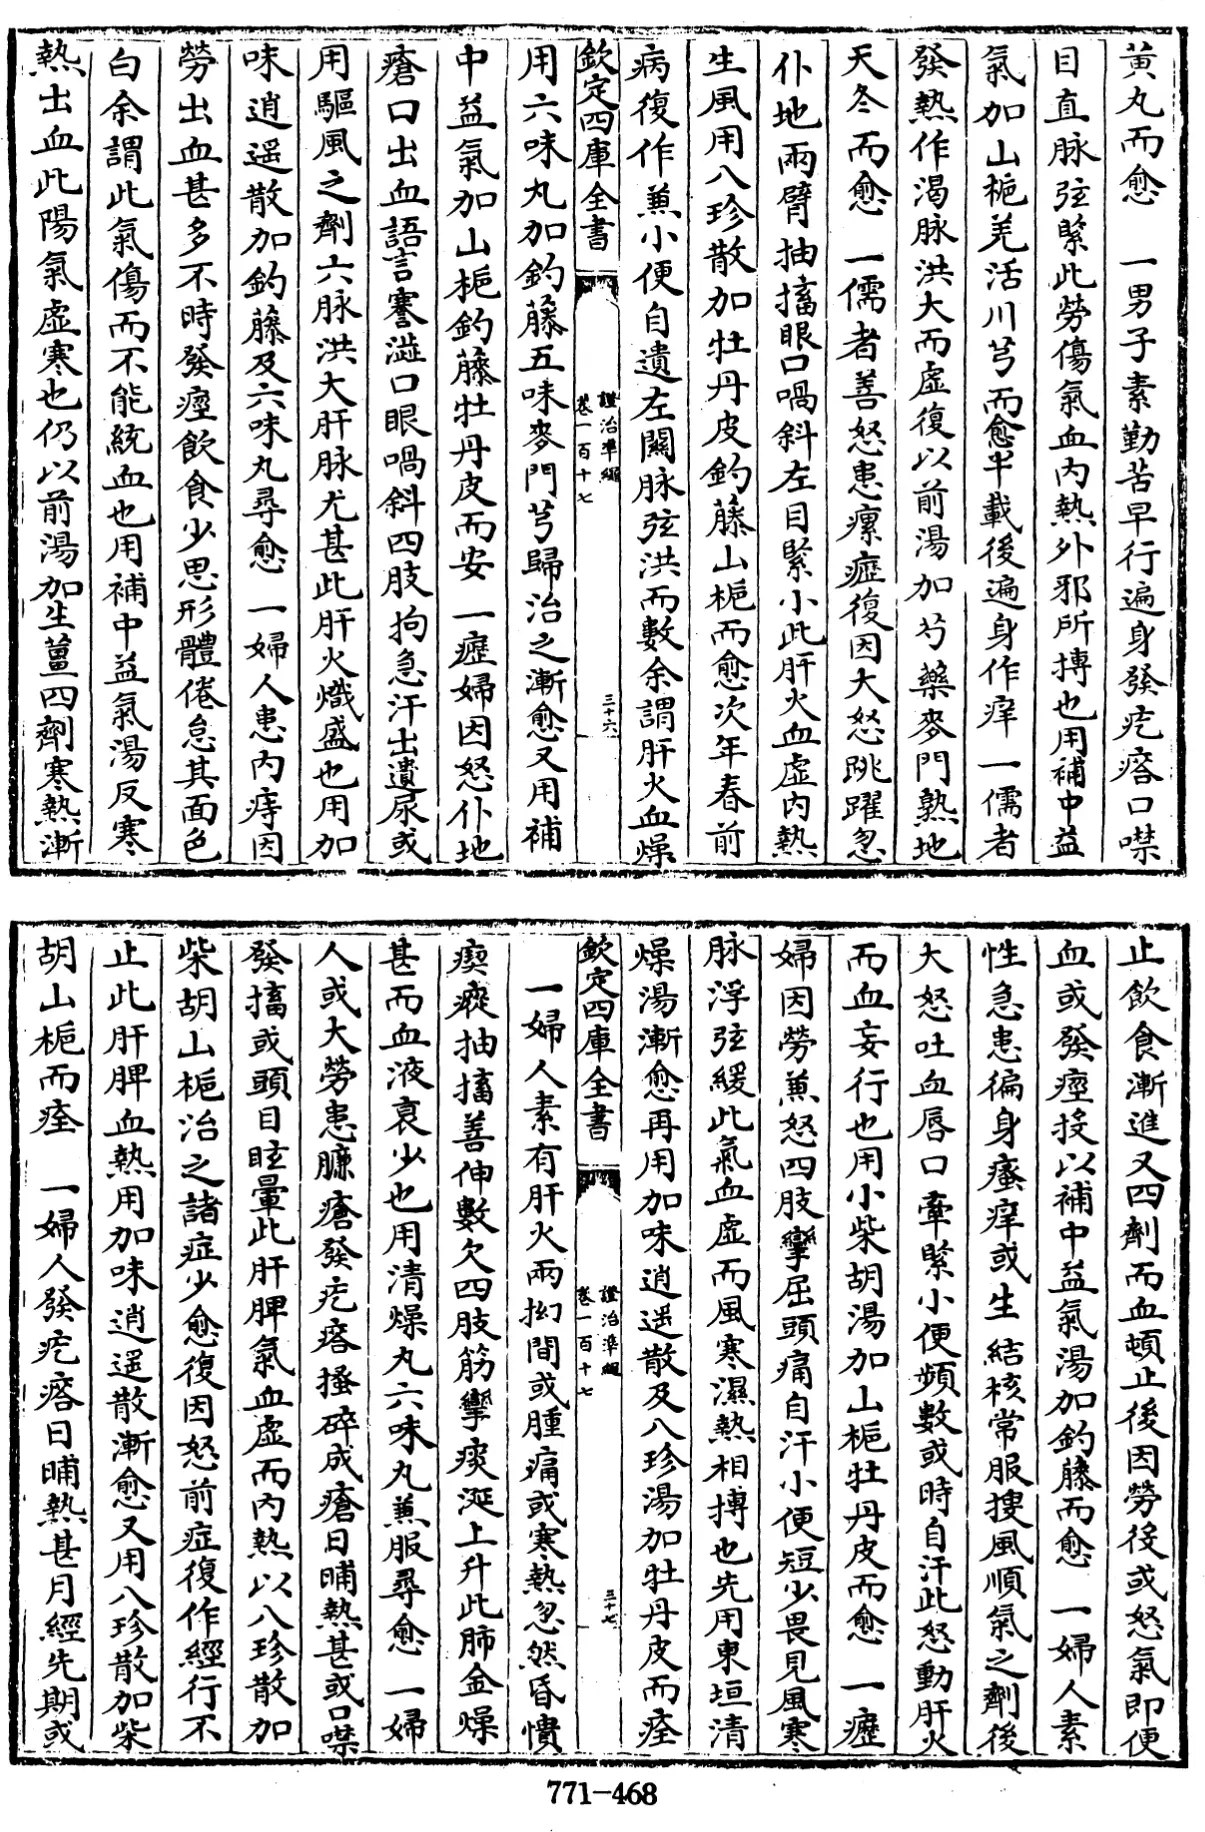 黄丸而愈　一男子素勤苦早行遍身發疙瘩口噤
目直脉弦緊此勞傷氣血内熱外邪所搏也用補中益
氣加山梔羌活川芎而愈半載後遍身作痒　一儒者
發熱作渴脉洪大而虛復以前湯加芍藥麥門熟地
天冬而愈　一儒者善怒患瘰癧復因大怒跳躍忽
仆地兩臂抽搐眼口喎斜左目緊小此肝火血虛内熱
生風用八珍散加牡丹皮鈎藤山梔而愈次年春前
病復作兼小便自遺左關脉弦洪而數余謂肝火血燥
欽定四庫全書
證治準繩
卷一百十七
三十六
用六味丸加鈎藤五味麥門芎歸治之漸愈又用補
中益氣加山梔鈎藤牡丹皮而安　一癧婦因怒仆地
瘡口出血語言蹇澁口眼喎斜四肢拘急汗出遺尿或
用驅風之劑六脉洪大肝脉尤甚此肝火熾盛也用加
味逍遥散加鈎藤及六味丸尋愈　一婦人患内痔因
勞出血甚多不時發痙飲食少思形體倦怠其面色
白余謂此氣傷而不能統血也用補中益氣湯反寒
熱出血此陽氣虛寒也仍以前湯加生薑四劑寒熱漸
止飲食漸進又四劑而血頓止後因勞後或怒氣即便
血或發痙投以補中益氣湯加鈎藤而愈　一婦人素
性急患徧身瘙痒或生結核常服搜風順氣之劑後
大怒吐血唇口牽緊小便頻數或時自汗此怒動肝火
而血妄行也用小柴胡湯加山梔牡丹皮而愈　一癧
婦因勞兼怒四肢攣屈頭痛自汗小便短少畏見風寒
脉浮弦緩此氣血虛而風寒濕熱相搏也先用東垣清
燥湯漸愈再用加味逍遥散及八珍湯加牡丹皮而痊
欽定四庫全書
證治準繩
卷一百十七
三十七
一婦人素有肝火兩拗間或腫痛或寒熱忽然昏憒
瘈瘲抽搐善伸數欠四肢筋攣痰涎上升此肺金燥
甚而血液衰少也用清燥丸六味丸兼服尋愈　一婦
人或大勞患臁瘡發疙瘩搔碎成瘡日晡熱甚或口噤
發搐或頭目眩暈此肝脾氣血虛而内熱以八珍散加
柴胡山梔治之諸症少愈復因怒前症復作經行不
止此肝脾血熱用加味逍遥散漸愈又用八珍散加柴
胡山梔而痊　一婦人發疙瘩日晡熱甚月經先期或
771-468